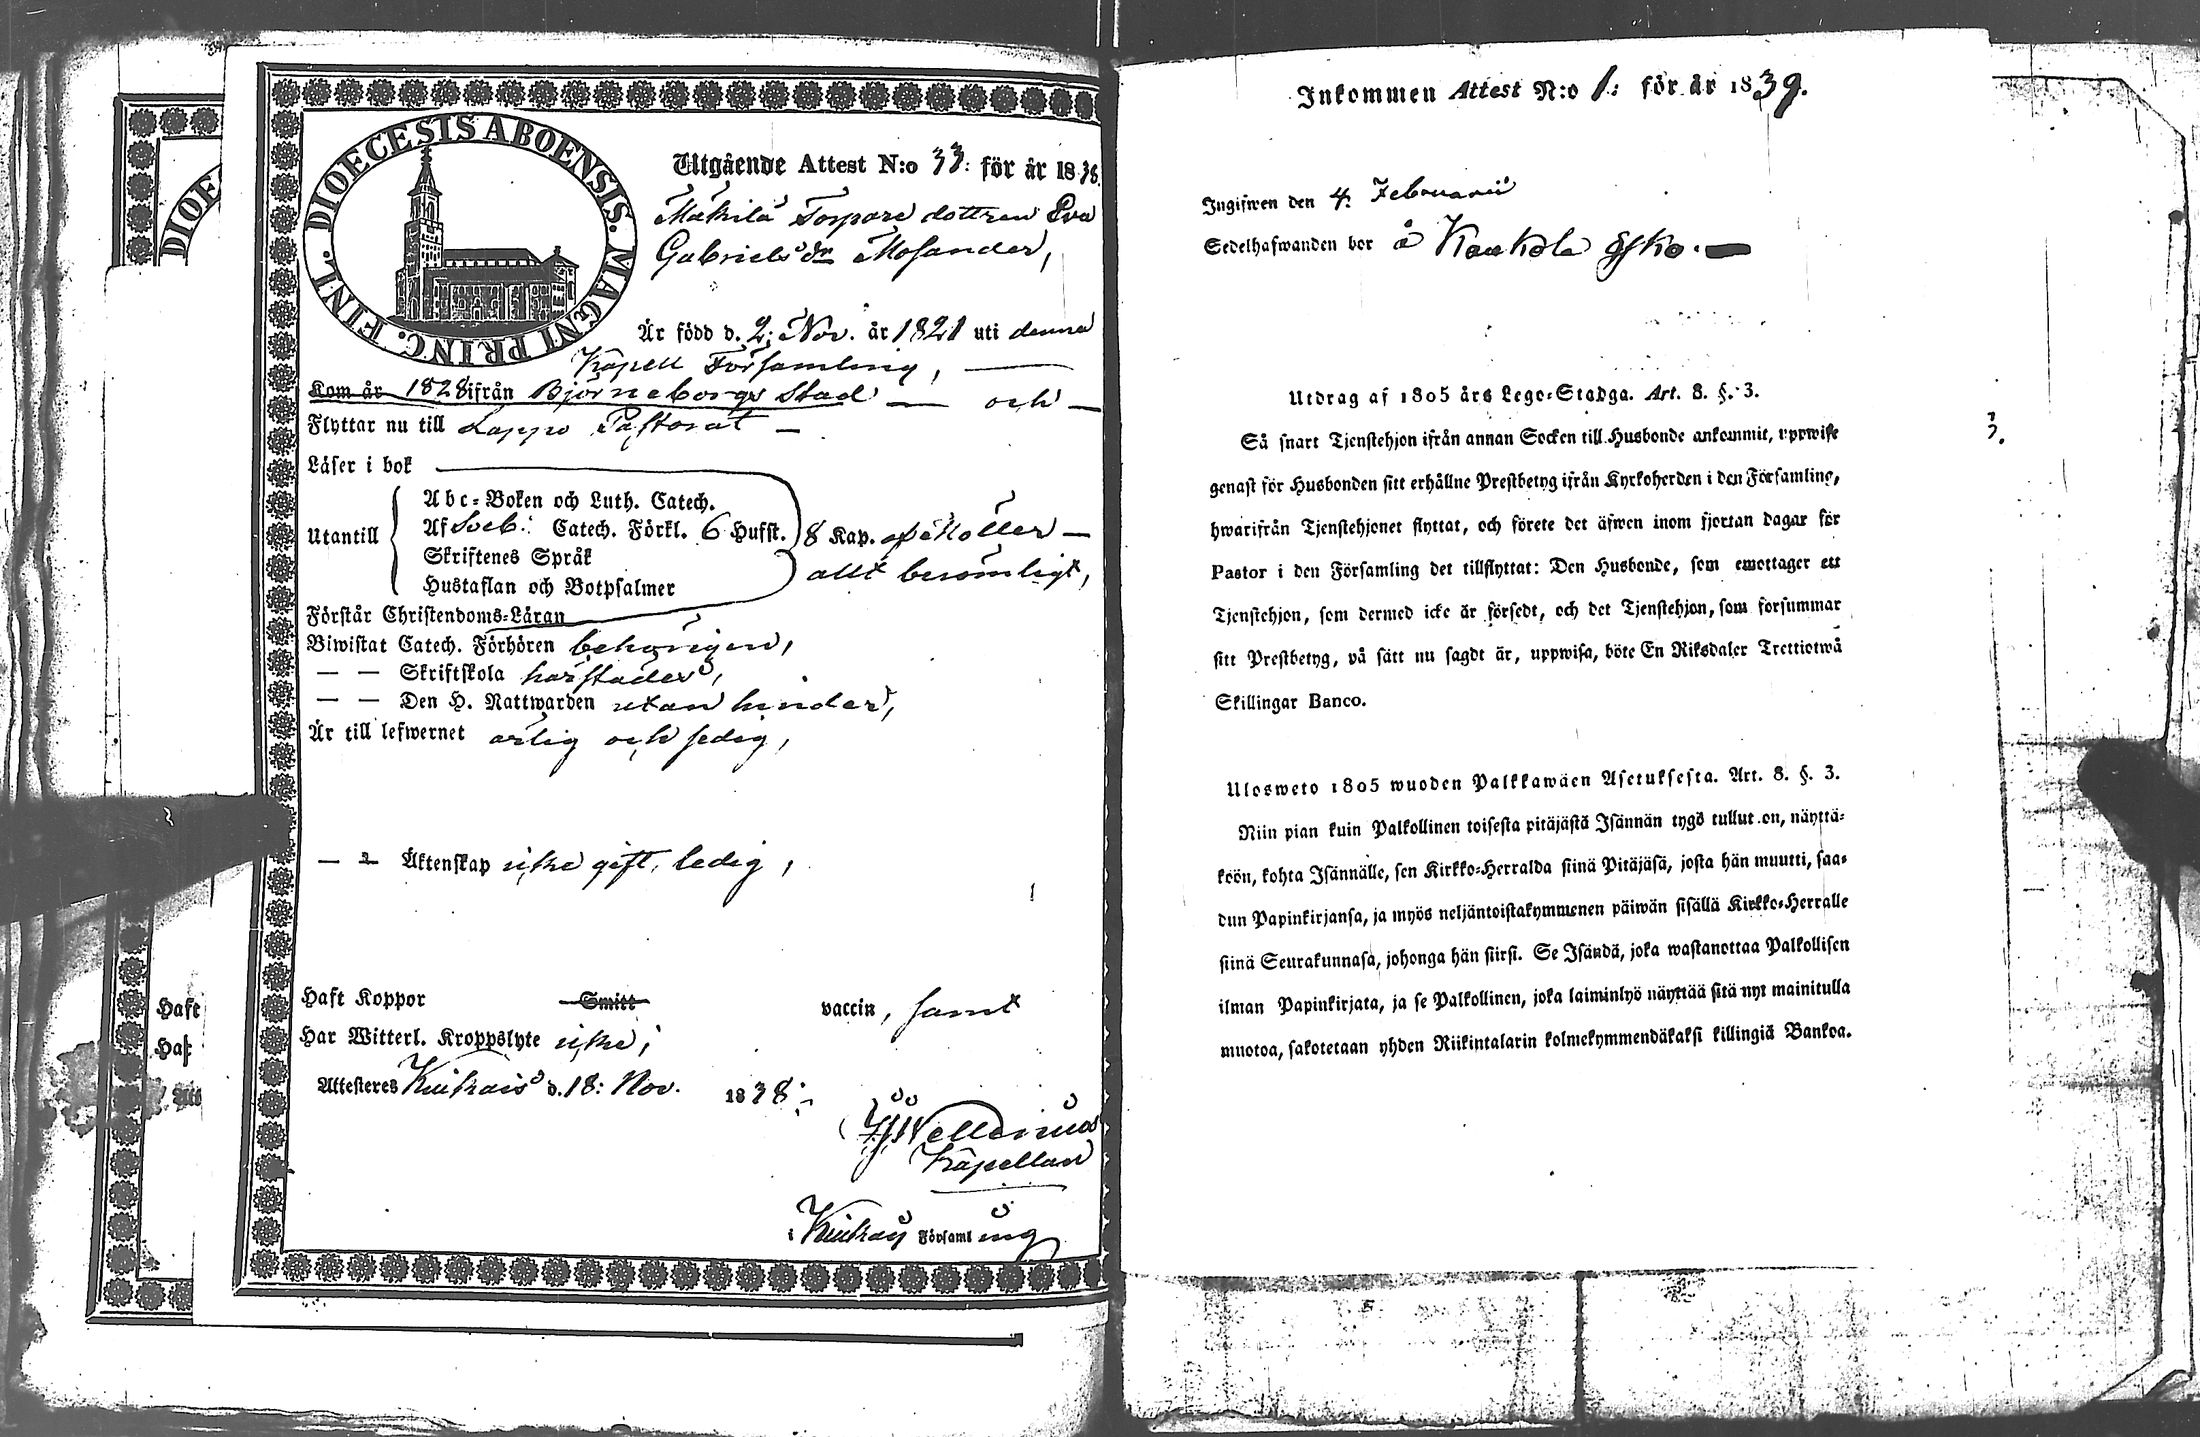 DIOECESIS ABOENSIS. MAGNI PRINC. FINL.
Utgående Attest N:o 33: för år 1838.
Torpare dottren Eva
Gabrielsdr Mosander,
Är född d. 2: Nov. år 1821 uti denna
Kapell Församling,
Kom år 1828 ifrån Björneborgs Stad — och —
Flyttar nu till Lappo Pastorat —
Läser i bok
Utantill
Abc-Boken och Luth. Catech.
Af Sveb: Catech. Förkl. 6 Hufst. 8 Kap.
Skriftenes Språk
allt berömligt,
Hustaflan och Botpsalmer
Förstår Christendoms-Läran
Biwistat Catech. Förhören behörigen,
— — Skriftskola härstädes,
— — Den H. Nattwarden utan hinder,
Är till lefwernet ärlig och sedig,
— — Äktenskap icke gift, ledig,
Haft Koppor Smitt vaccin, samt
Har Witterl. Kroppslyte icke;
Attesteres Kiukais d. 18: Nov. 1838:
Wellenius
Kapellan
i Kiukais Församling
DIOE
Haft
Har
Att
Inkommen Attest N:o 1: för år 1839.
Ingifwen den 4. Februarii
Sedelhafwanden bor å Kaukola
Utdrag af 1805 års Lego-Stadga. Art. 8. §. 3.
Så snart Tjenstehjon ifrån annan Socken till Husbonde ankommit, uppwise
genast för Husbonden sitt erhållne Prestbetyg ifrån Kyrkoherden i den Församling,
hwarifrån Tjenstehjonet flyttat, och förete det äfwen inom fjortan dagar för
Pastor i den Församling det tillflyttat: Den Husbonde, som emottager ett
Tjenstehjon, som dermed icke är försedt, och det Tjenstehjon, som forsummar
sitt Prestbetyg, på sätt nu sagdt är, uppwisa, böte En Riksdaler Trettiotwå
Skillingar Banco.
Ulosweto 1805 wuoden Palkkawäen Asetuksesta. Art. 8. §. 3.
Niin pian kuin Palkollinen toisesta pitäjästä Isännän tygö tullut on, näyttä-
köön, kohta Isännälle, sen Kirkko-Herralda siinä Pitäjäsä, josta hän muutti, saa-
dun Papinkirjansa, ja myös neljäntoistakymmenen päiwän sisällä Kirkko-Herralle
siinä Seurakunnasa, johonga hän siirsi. Se Isändä, joka wastanottaa Palkollisen
ilman Papinkirjata, ja se Palkollinen, joka laiminlyö näyttää sitä nyt mainitulla
muotoa, sakotetaan yhden Riikintalarin kolmekymmendäkaksi killingiä Bankoa.
3.